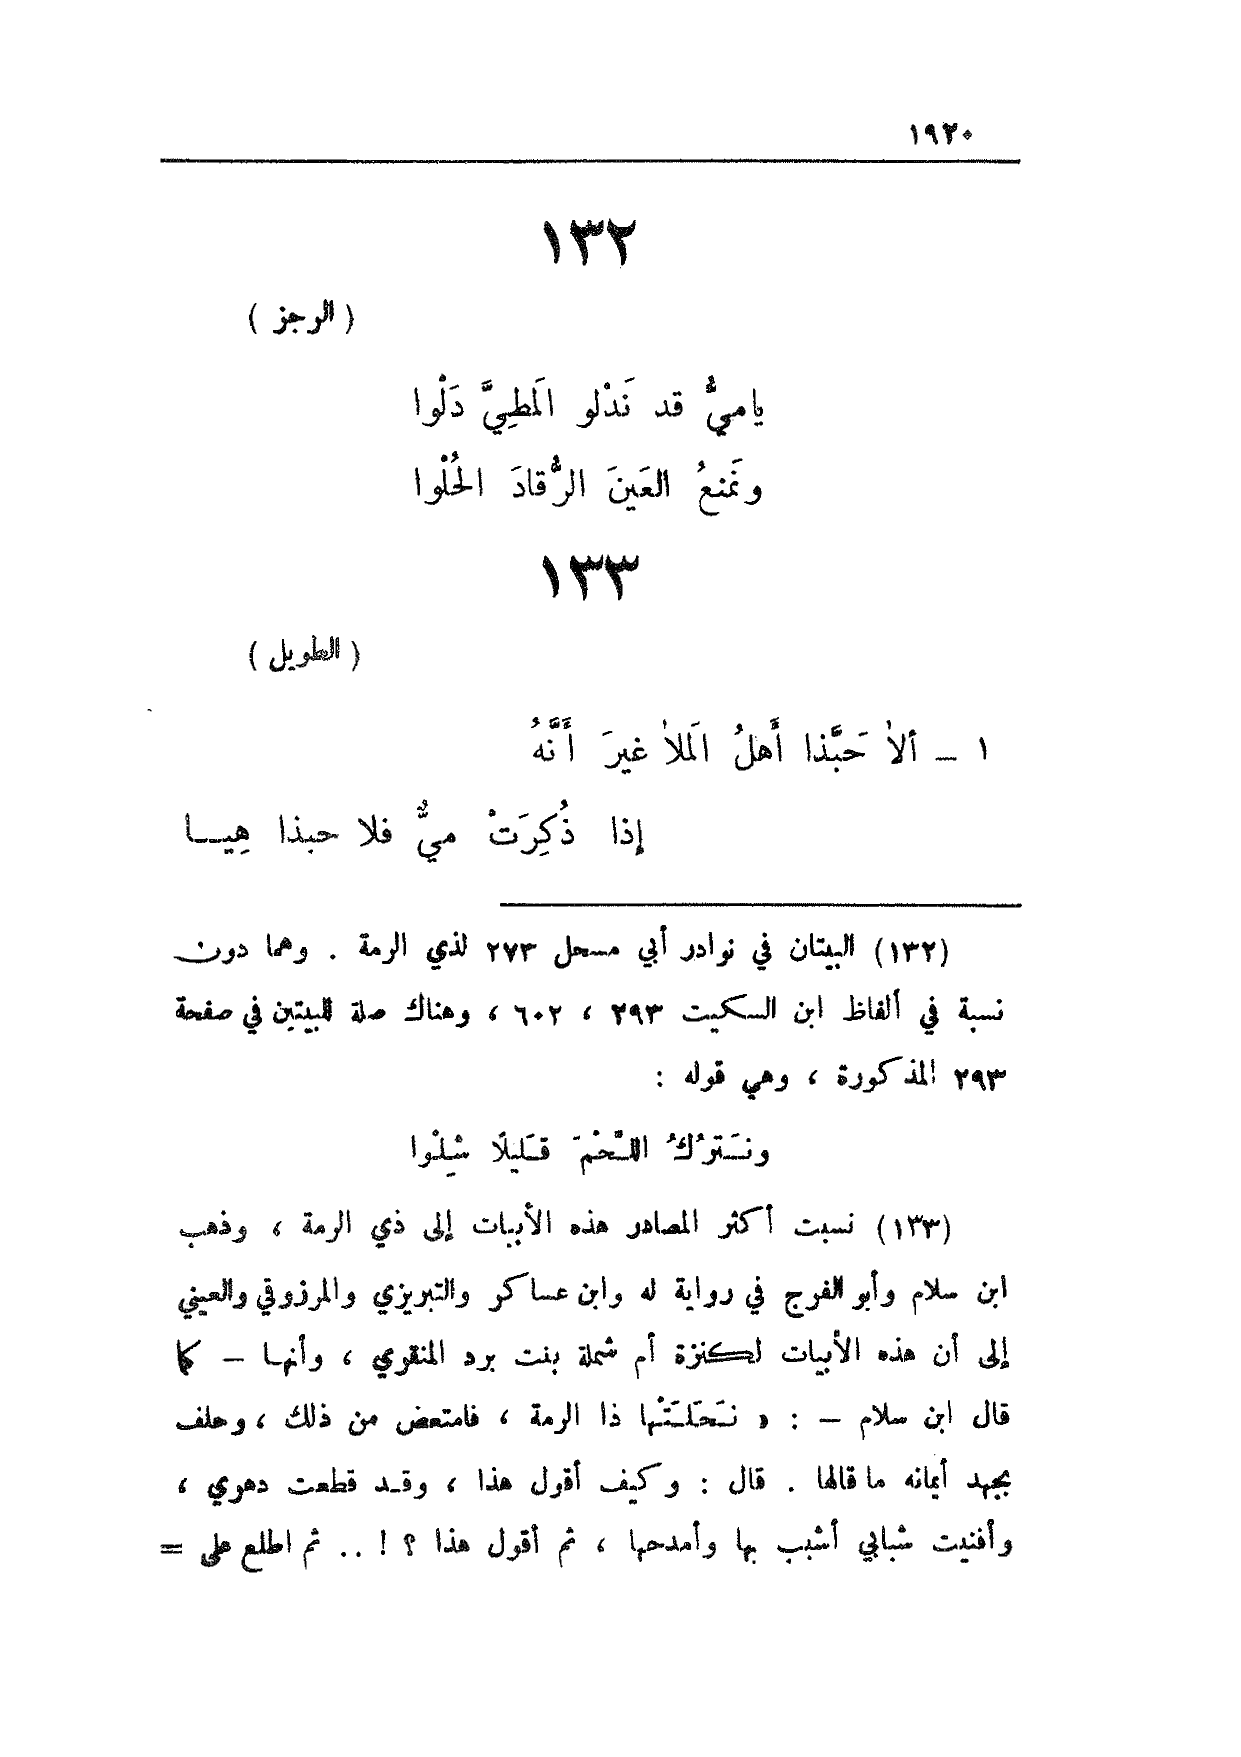 ١٩٢٠
١٣٢
( الرجز )
ياميُّ قد نَدْلو المَطِيَّ دَلْوا
ونَمنعُ العَينَ الرُّقادَ الحُلْوا
١٣٣
( الطويل )
١ ـ ألاٰ حَبَّذا أَهلُ المَلاٰ غيرَ أَنَّهُ
إذا ذُكِرَتْ ميٌّ فلا حبذا هِيـا
(١٣٢) البيتان في نوادر أبي مسحل ٢٧٣ لذي الرمة . وهما دون
نسبة في ألفاظ ابن السكيت ٢٩٣ ، ٦٠٢ ، وهناك صلة للبيتين في صفحة
٢٩٣ المذكورة ، وهي قوله :
ونَـترُكُ اللَّحْمَ قَليلًا شِلْوا
(١٣٣) نسبت أكثر المصادر هذه الأبيات إلى ذي الرمة ، وذهب
ابن سلام وأبو الفرج في رواية له وابن عساكر والتبريزي والمرزوقي والعيني
إلى أن هذه الأبيات لكنزة أم شملة بنت برد المنقري ، وأنهـا – كما
قال ابن سلام – : « نَـحَلَـتْها ذا الرمة ، فامتعض من ذلك ، وحلف
بجهد أيمانه ما قالها . قال : وكيف أقول هذا ، وقـد قطعت دهري ،
وأفنيت شبابي أشبب بها وأمدحها ، ثم أقول هذا ؟ ! .. ثم اطلع على =